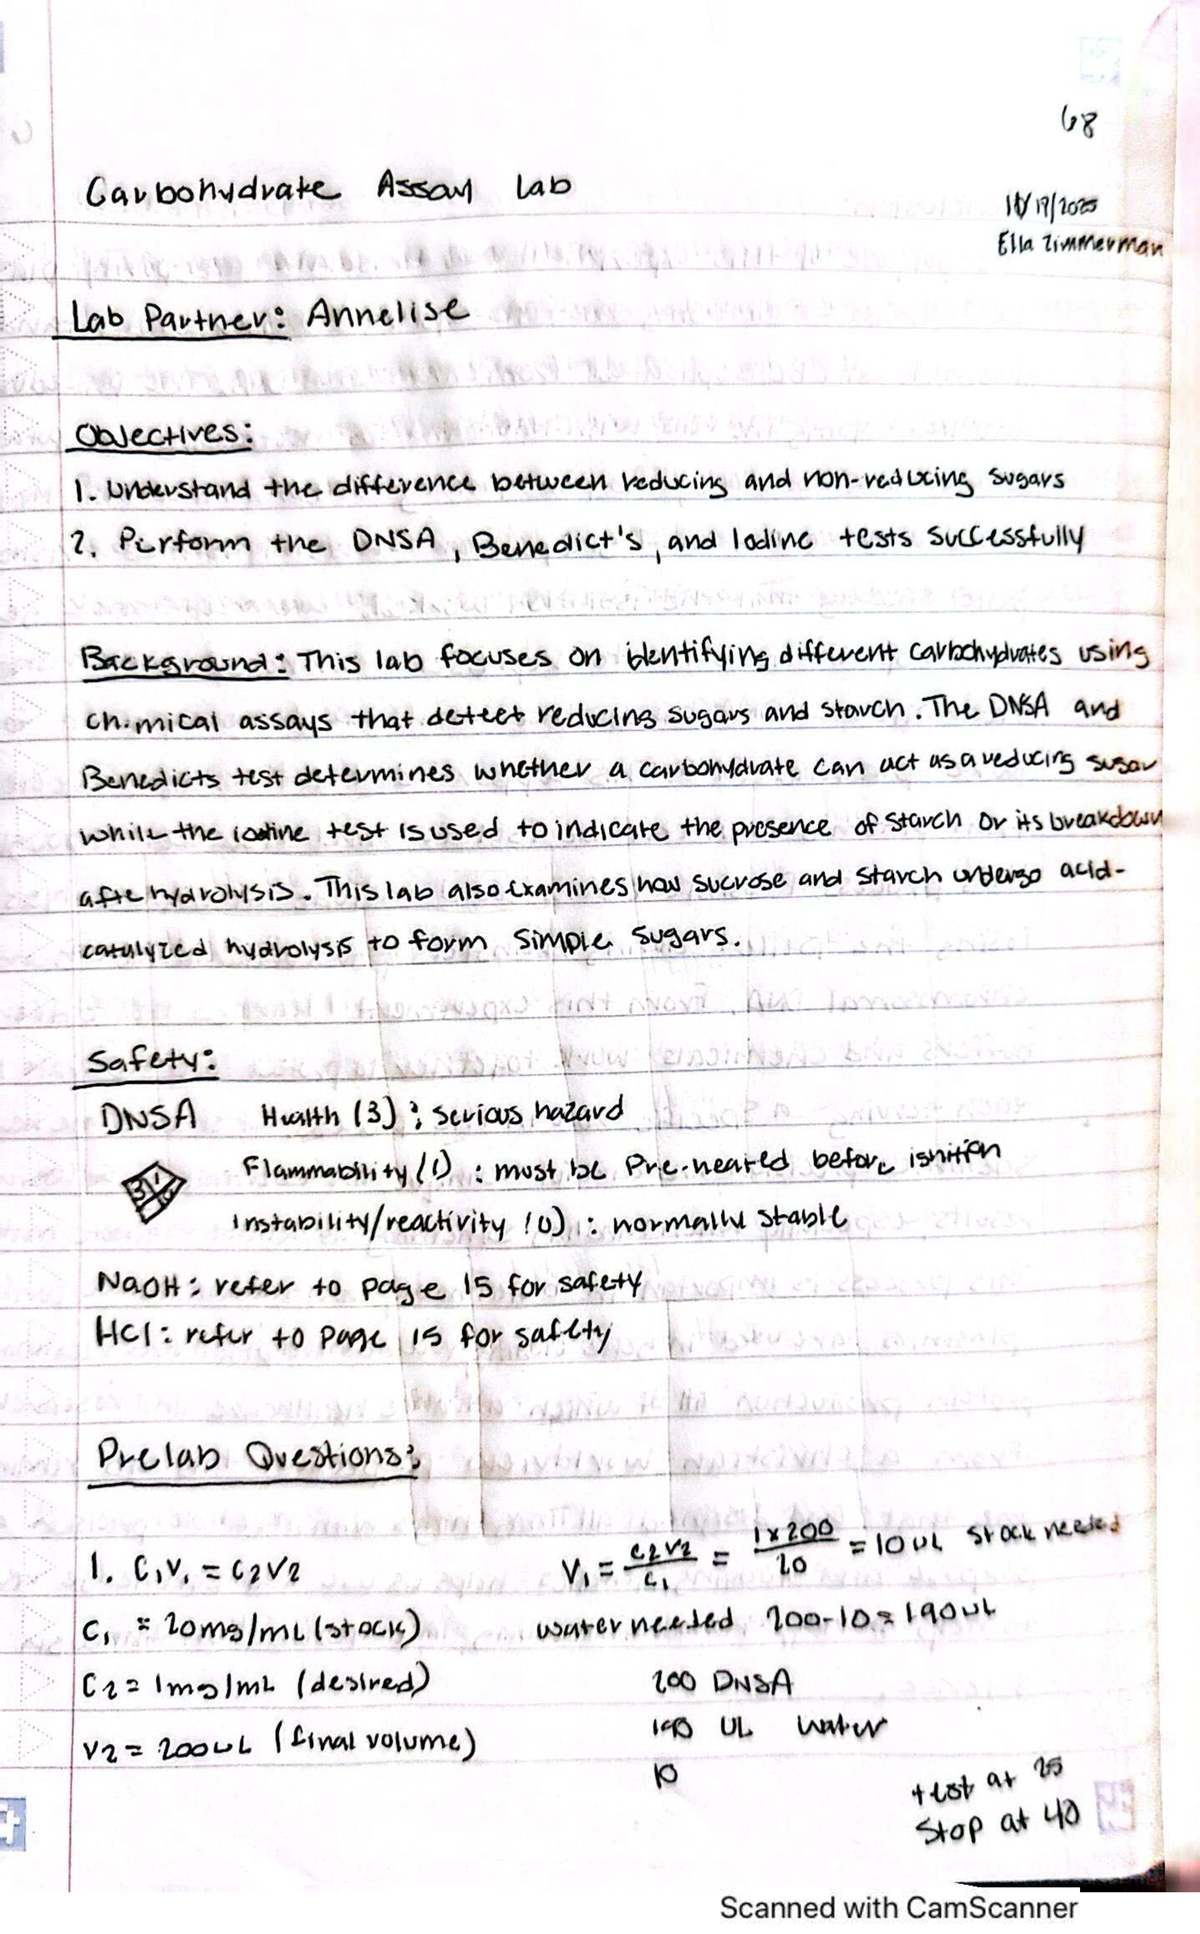 68
Carbohydrate Assay Lab
Ella Zimmerman
Lab Partner: Annelise
Objectives:
1. Understand the difference between reducing and non-reducing sugars
2. Perform the DNSA, Benedict's, and Iodine tests successfully
Background: This lab focuses on identifying different carbohydrates using
chemical assays that detect reducing sugars and starch. The DNSA and
Benedicts test determines whether a carbohydrate can act as a reducing sugar
while the iodine test is used to indicate the presence of starch or its breakdown
afte hydrolysis. This lab also examines how sucrose and starch undergo acid-
catalyzed hydrolysis to form simple sugars.
Safety:
DNSA Health (3): serious hazard
Flammability (1): must be Pre-heated before ignition
3 1 0
Instability/reactivity (0): normally stable
NaOH: refer to page 15 for safety
HCl: refer to page 15 for safety
Prelab Questions:
1. C₁V₁ = C2V2 V₁ = C2V2/C₁ = 1x200/20 = 10uL stock needed
C₁ = 20mg/mL (stock) water needed 200-10 = 190uL
C2 = 1mg/mL (desired) 200 DNSA
V2 = 200uL (final volume) 190 UL water
10
test at 25
Stop at 40
Scanned with CamScanner